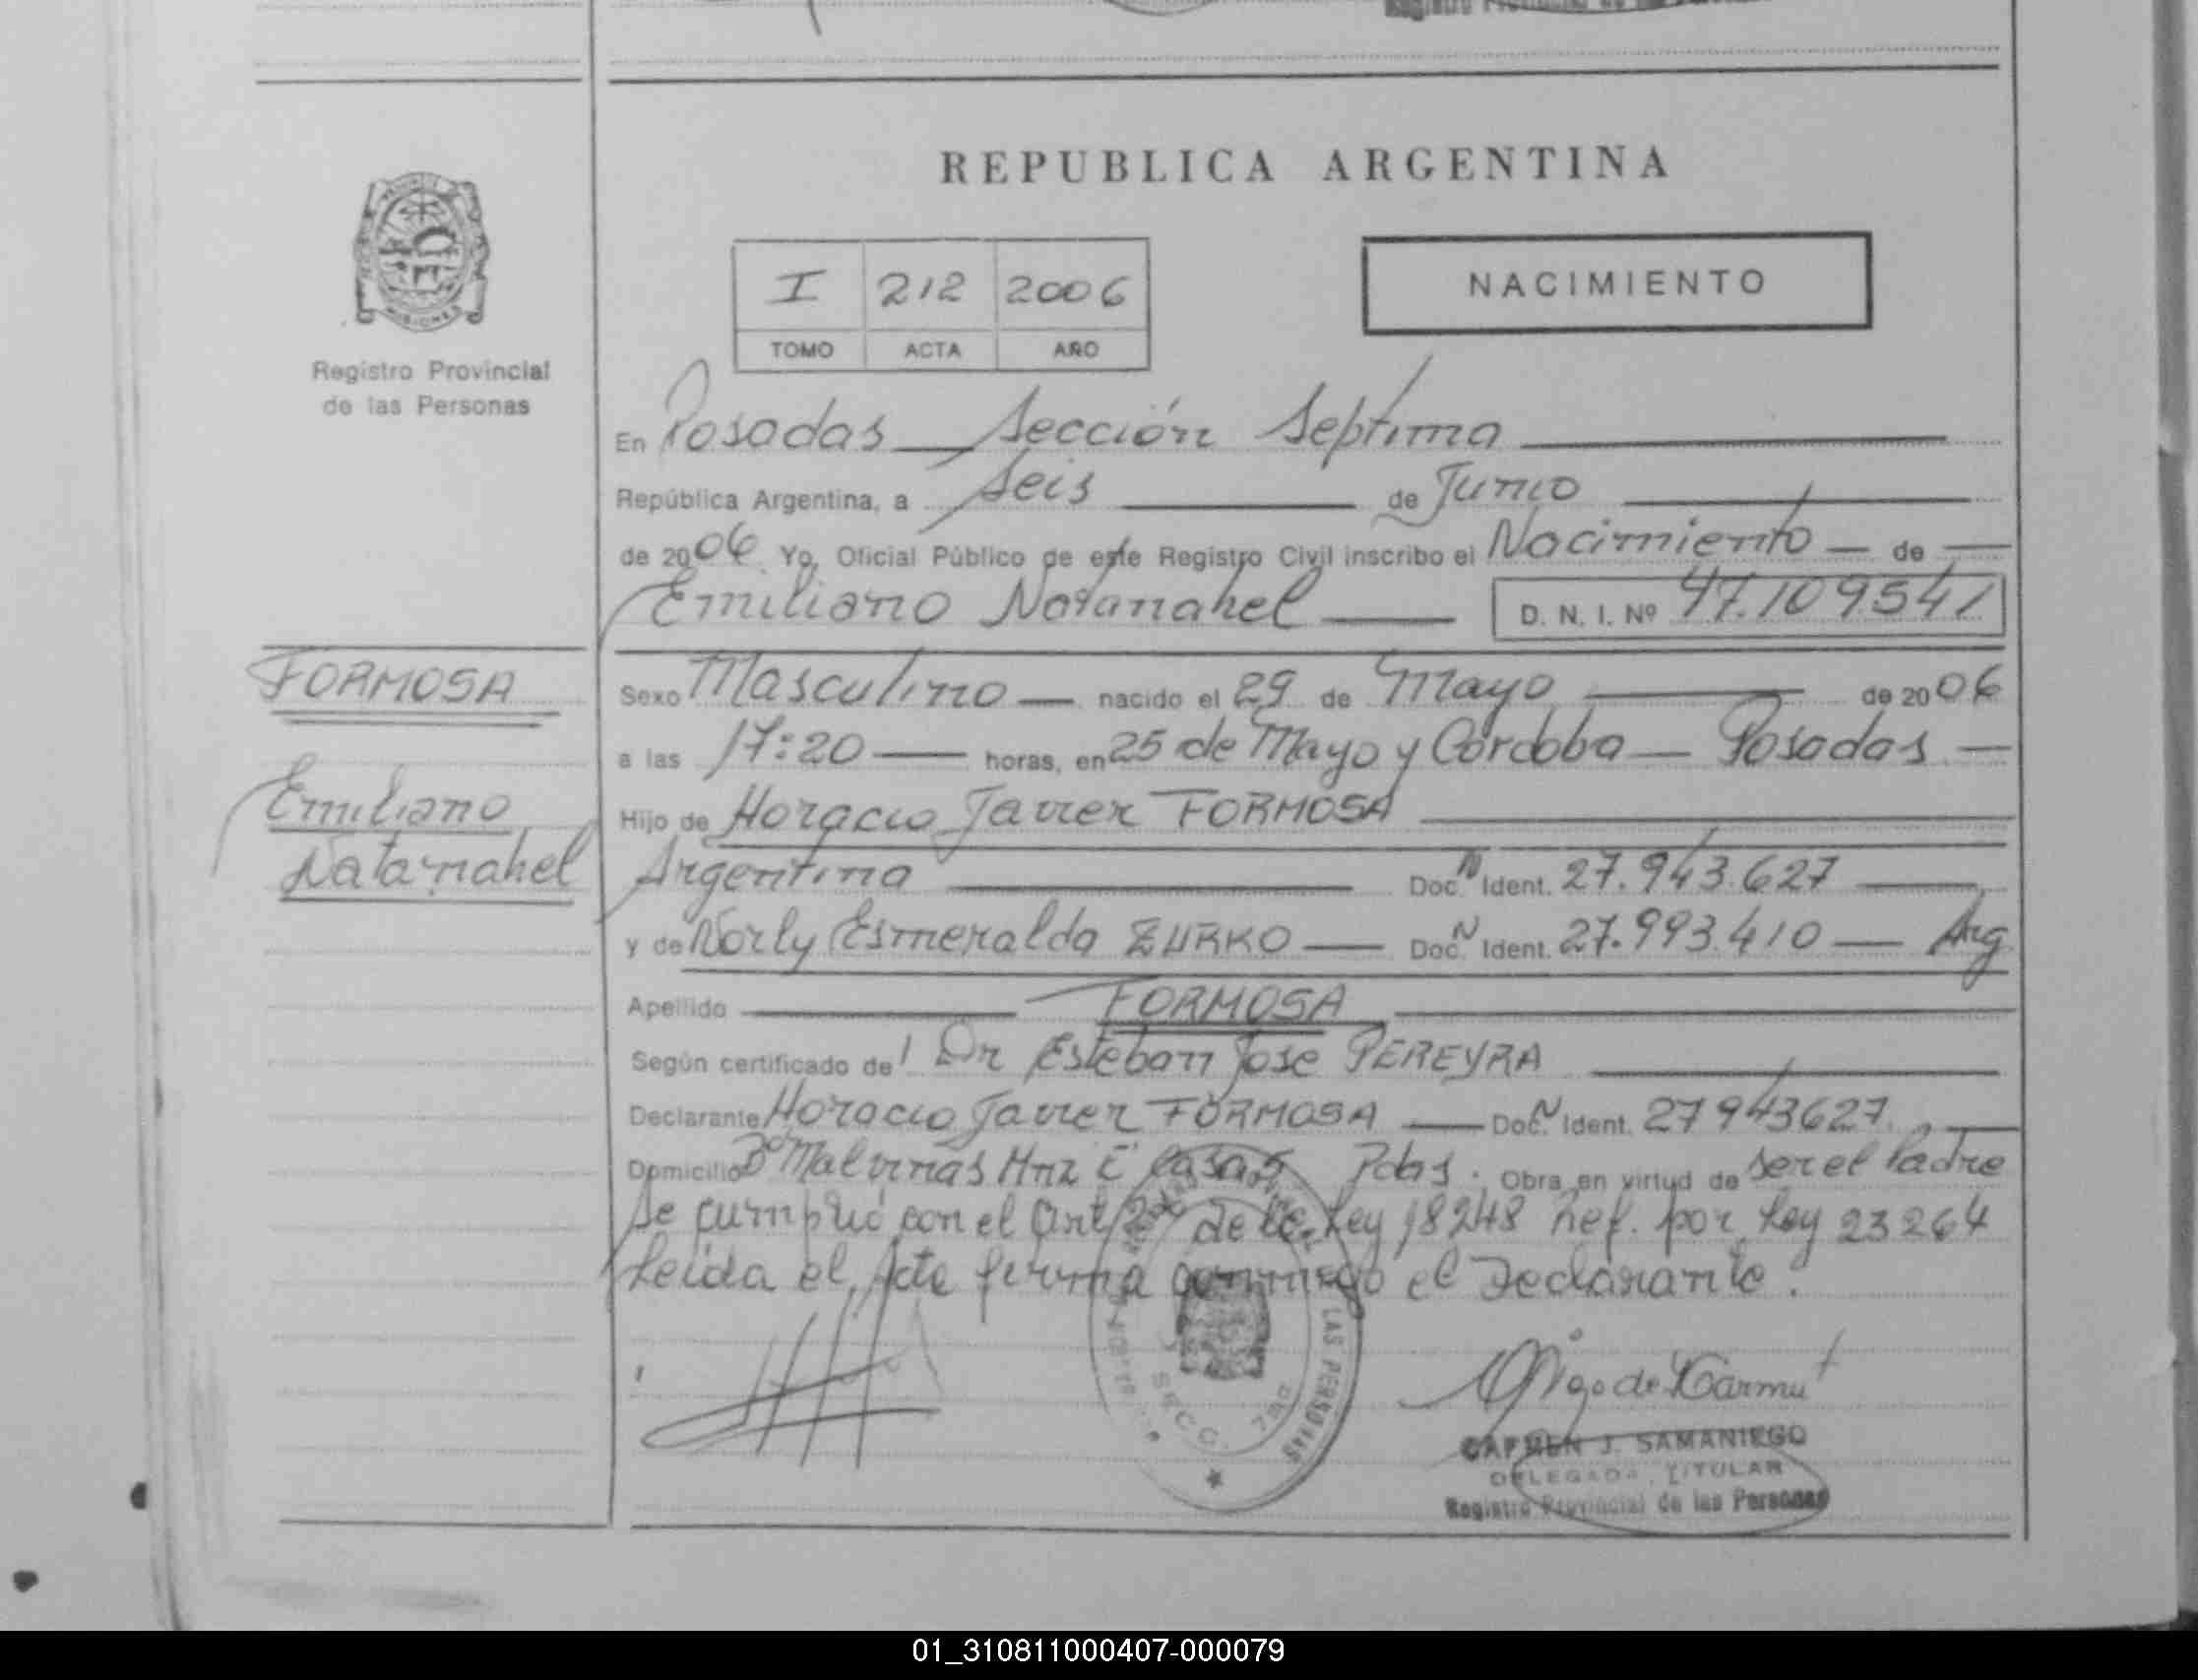 REPUBLICA ARGENTINA
NACIMIENTO
I 212 2006
TOMO ACTA AÑO
MISIONES
Registro Provincial
de las Personas
En Posadas Sección Septima
República Argentina, a Seis de Junio
de 2006 Yo, Oficial Público de este Registro Civil inscribo el Nacimiento de
Emiliano Natanahel D. N. I. Nº 47.109541
FORMOSA
Emiliano
Natanahel
Sexo Masculino nacido el 29 de Mayo de 2006
a las 17:20 horas, en 25 de Mayo y Córdoba Posadas
Hijo de Horacio Javier FORMOSA
Argentina Doc. N Ident. 27.943.627
y de Norly Esmeralda ZURKO Doc. N Ident. 27.993.410 Arg
Apellido FORMOSA
Según certificado del Dr Esteban Jose PEREYRA
Declarante Horacio Javier FORMOSA Doc. N Ident. 27943627
Domicilio Bº Malvinas Mnz E casa 5 Pdas. Obra en virtud de ser el Padre
Se cumplió con el art de la Ley 18248 ref. por Ley 23264
Leida el Acta firma conmigo el Declarante.
LAS PERSONAS
SECC. 7ma
CARMEN J. SAMANIEGO
DELEGADA TITULAR
Registro Provincial de las Personas
01_310811000407-000079